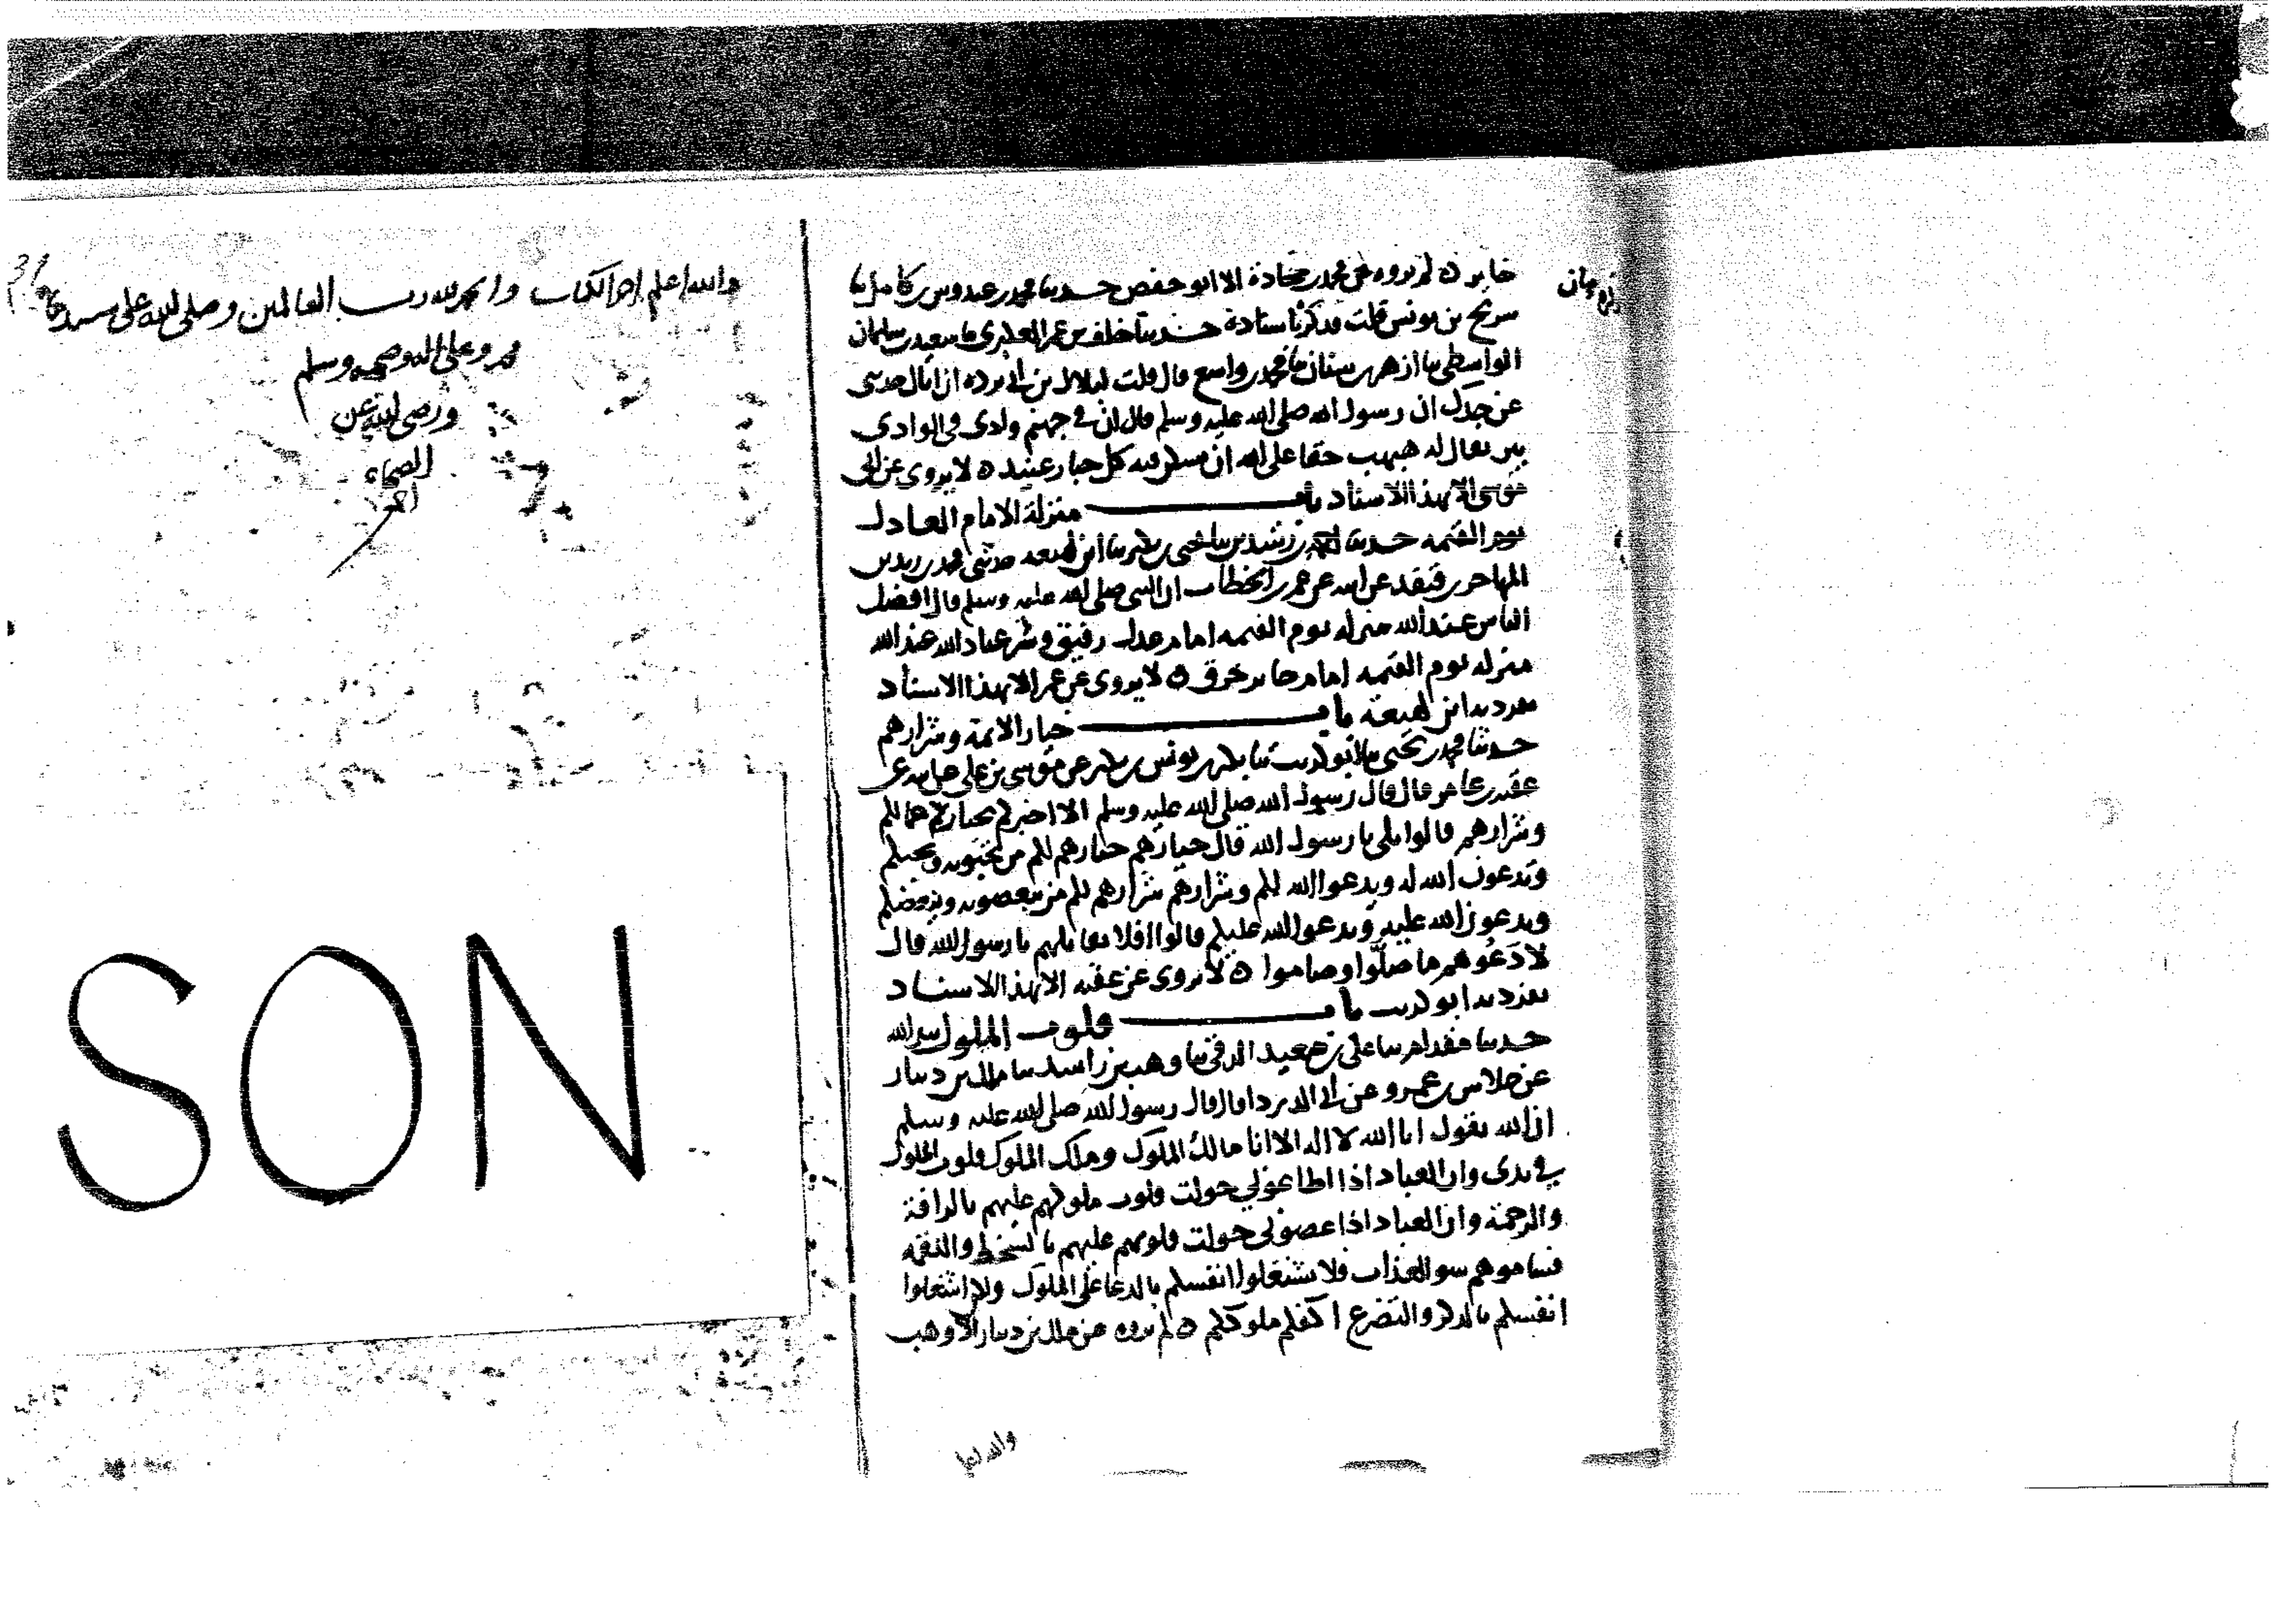 لم يروه عن محمد بن جحادة الا ابو حفص حدثنا محمد بن عبدوس بن كامل ثنا
سريج بن يونس قلت فذكر باسناده حدثنا خلف بن عمر العكبرى ثنا سعيد بن سليمان
الواسطى ثنا ازهر بن سنان ثنا محمد بن واسع قال قلت لبلال بن ابى برده ان اباك حدثنى
عن جدك ان رسول الله صلى الله عليه وسلم قال ان فى جهنم وادى وفى الوادى
بير يقال له هبهب حقا على الله ان يسكن فيه كل جبار عنيد ه لا يروى عن ابى
موسى الا بهذا الاسناد باب منزلة الامام العادل
يوم القيمه حدثنا احمد بن رشدين ثنا يحيى بن بكير ثنا ابن لهيعه حدثنى محمد بن زيد بن
المهاجر بن قنفد عن ابيه عن عمر بن الخطاب ان النبى صلى الله عليه وسلم قال افضل
الناس عند الله منزله يوم القيمه امام عدل رفيق وشر عباد الله عند الله
منزله يوم القيمه امام جاير خرق ه لا يروى عن عمر الا بهذا الاسناد
تفرد به ابن لهيعة باب خيار الائمة وشرارهم
حدثنا محمد بن يحيى ثنا ابو كريب ثنا بكر بن يونس بن بكير عن موسى بن على عن ابيه عن
عقبه بن عامر قال قال رسول الله صلى الله عليه وسلم الا اخبركم بخيار عمالكم
وشرارهم قالوا بلى يا رسول الله قال خيارهم خيارهم لكم من تحبونه ويحبكم
وتدعون الله له ويدعوا الله لكم وشرارهم شرارهم لكم من تبغضونه ويبغضكم
وتدعون الله عليه ويدعوا الله عليكم قالوا افلا نقاتلهم يا رسول الله قال
لا دَعُوهم ما صلّوا وصاموا ه لا يروى عن عقبه الا بهذا الاسناد
تفرد به ابو كريب باب قلوب الملوك بيد الله
حدثنا مقدام ثنا على بن معبد الرقى ثنا وهب بن راشد ثنا ملك بن دينار
عن خلاس بن عمرو عن ابى الدرداء قال قال رسول الله صلى الله عليه وسلم
ان الله يقول انا الله لا اله الا انا مالك الملوك وملك الملوك قلوب الملوك
فى يدى وان العباد اذا اطاعونى حولت قلوب ملوكهم عليهم بالرافة
والرحمة وان العباد اذا عصونى حولت قلوبهم عليهم بالسخط والنقمه
فساموهم سو العذاب فلا تشغلوا انفسكم بالدعا على الملوك ولكن اشغلوا
انفسكم بالذكر والتضرع اكفكم ملوككم ه لم يروه عن ملك بن دينار الا وهب
والله اعلم
والله اعلم اخر الكتاب والحمد لله رب العالمين وصلى الله على سيدنا
محمد وعلى اله وصحبه وسلم
ورضى الله عن
الصحابه
SON